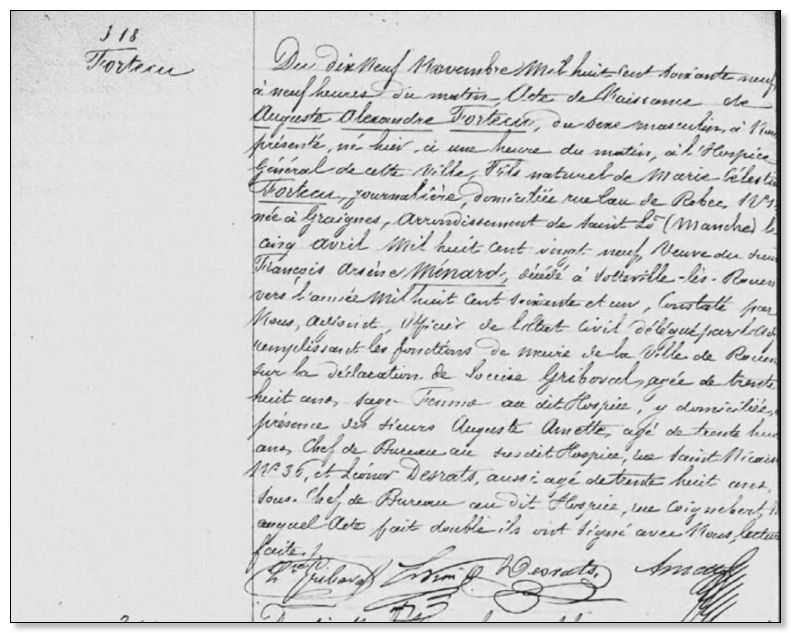 318
Forteau
Du dix Neuf Novembre Mil huit Cent Soixante neuf,
à neuf heures du matin, Acte de Naissance de
Auguste Alexandre Forteau, du sexe masculin, à Nous
présenté, né hier, à une heure du matin, à l'Hospice
Général de cette Ville, Fils naturel de Marie Célestin
Forteau, journalière, domiciliée rue Eau de Robec, N°
née à Graignes, Arrondissement de Saint Lô (Manche) le
cinq avril Mil huit Cent vingt neuf, Veuve du sieur
François Arsène Ménard, décédé à Sotteville-lès-Rouen
vers l'année Mil huit Cent Soixante et un, Constaté par
Nous, Adjoint, Officier de l'état Civil délégué par
remplissant les fonctions de maire de la Ville de Rouen
sur la déclaration de Louise Griboval, agée de trente
huit ans, sage-Femme au dit Hospice, y domiciliée,
présence des sieurs Auguste Amette, agé de trente huit
ans, Chef de Bureau au susdit Hospice, rue Saint Nicaise
N° 36, et Léonor Desrats, aussi agé de trente huit ans,
sous-Chef de Bureau au dit Hospice, rue Coignebert,
auquel Acte fait double ils ont signé avec Nous, lecture
faite.
Griboval Desrats